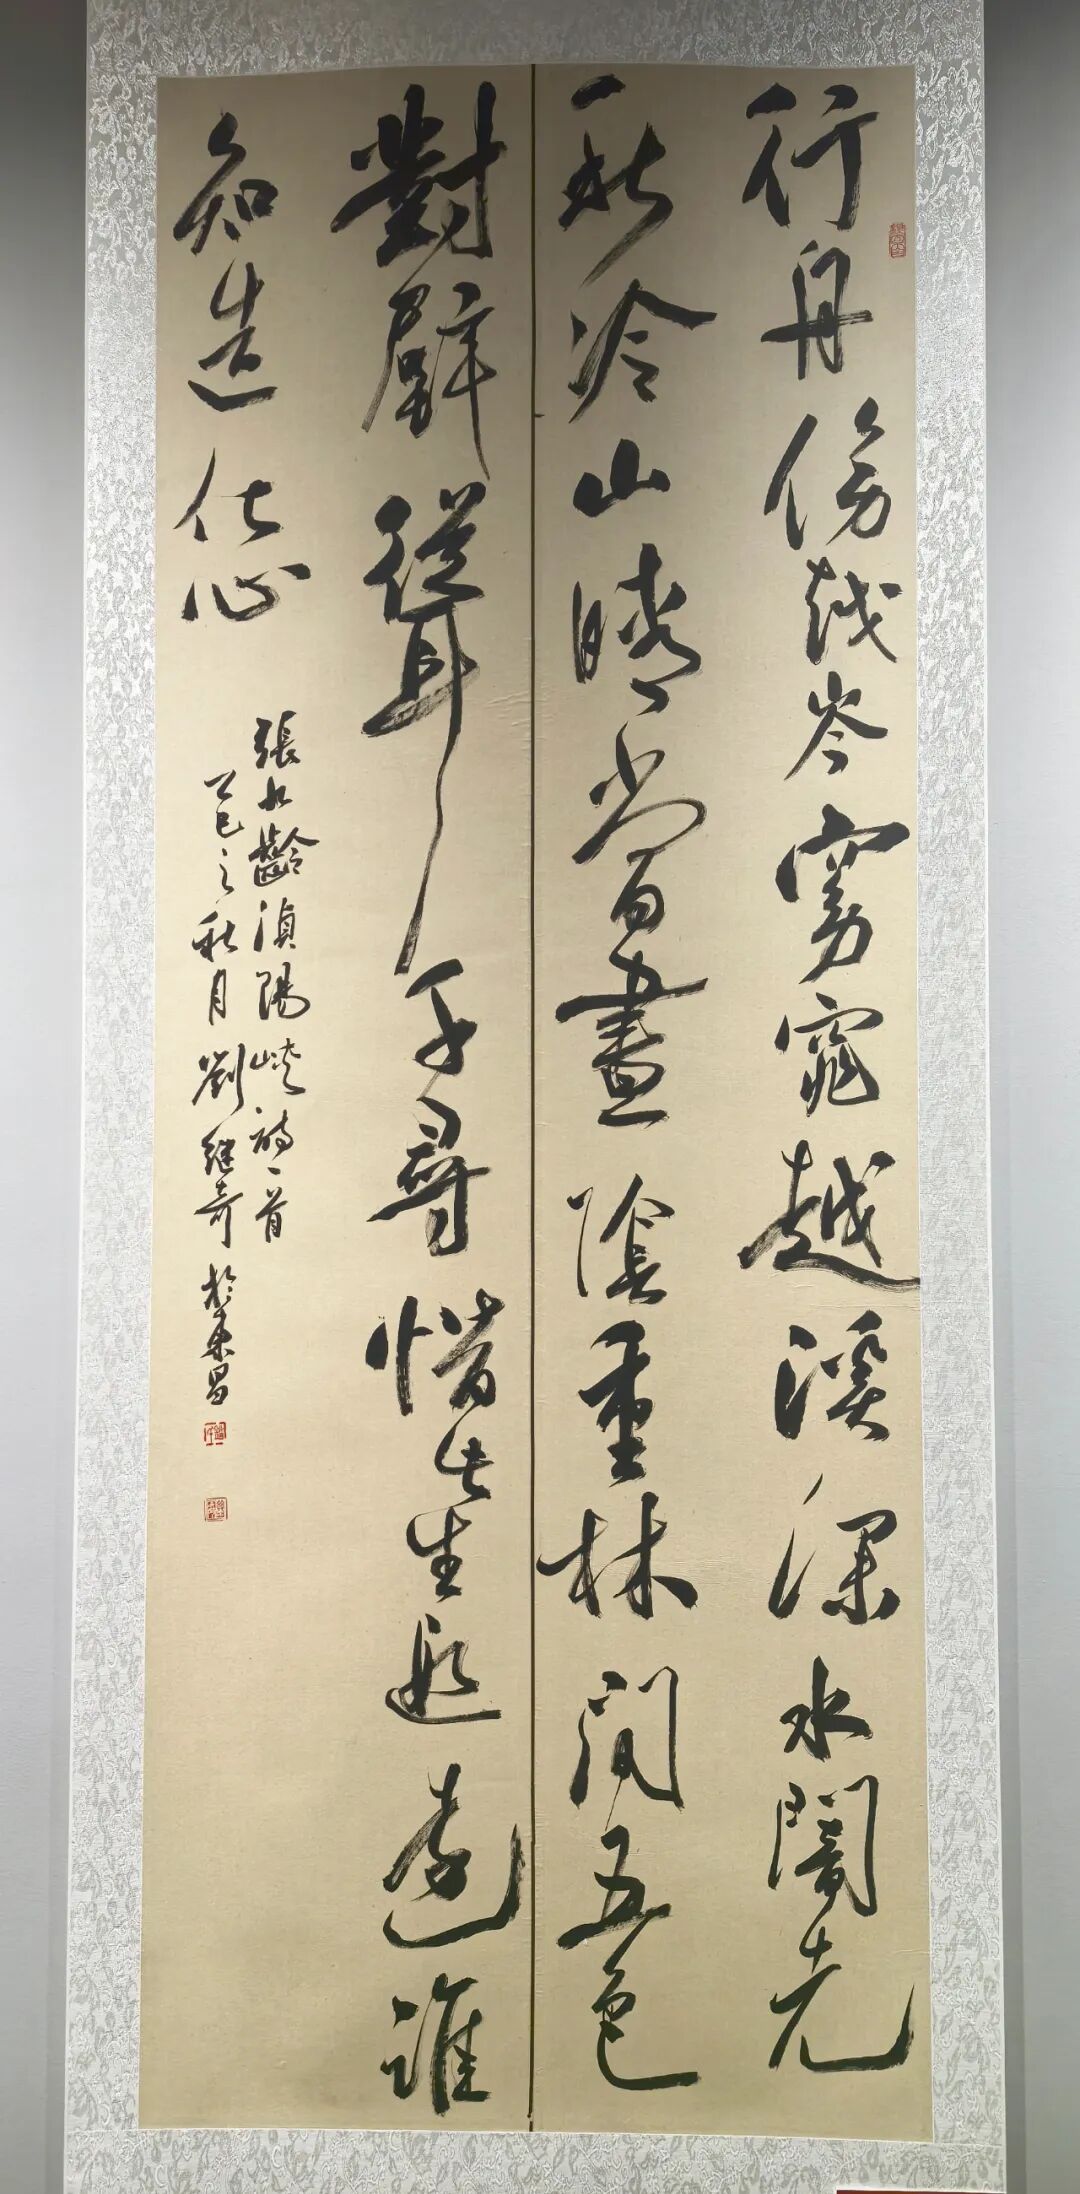 行舟傍越岑窈窕越溪深水闇先
秋冷山晴當晝陰重林間五色
對壁聳千尋惜此生遐遠誰
知造化心
張九齡湞陽峽詩一首
乙巳之秋月劉继奇於東昌